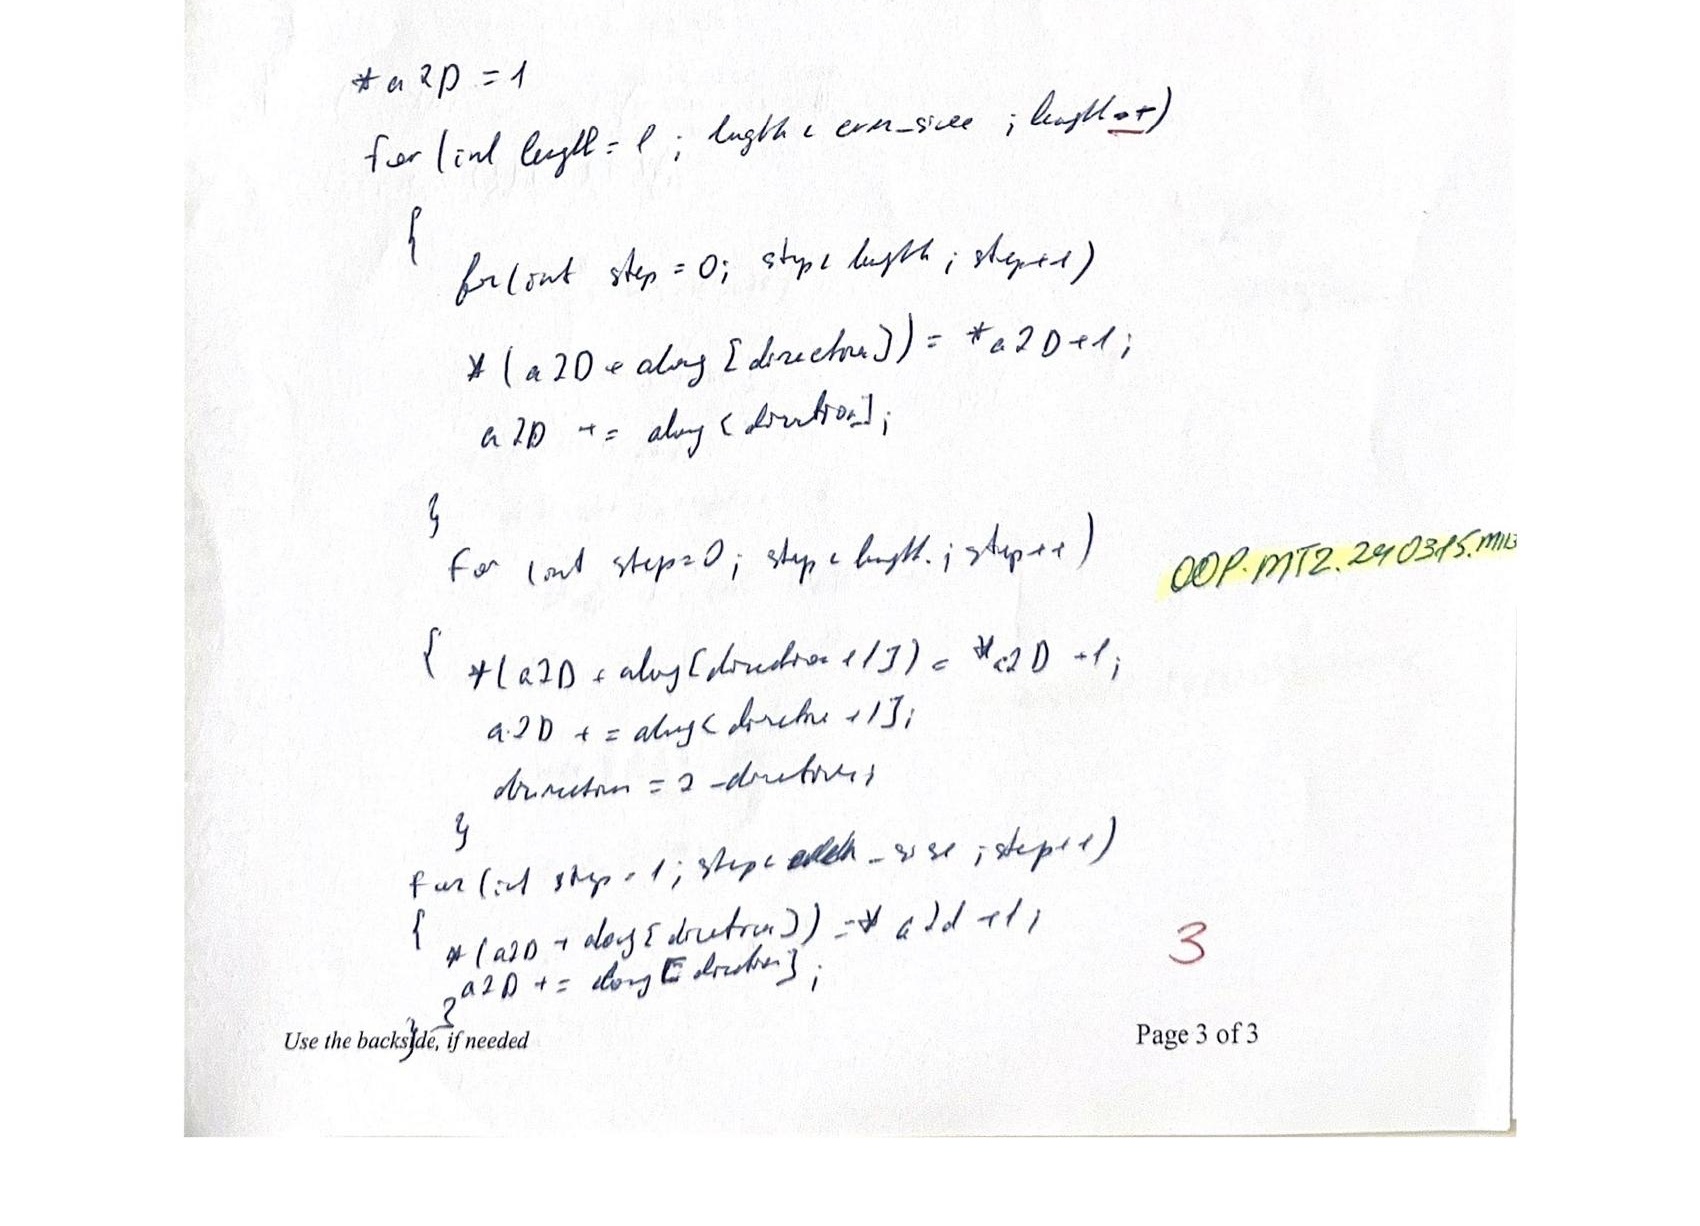 *a2D = 1
for (int length = 1 ; length < ; length++)
{
for (int step = 0; step < length ; step++)
*(a2D + along [direction]) = *a2D+1;
a2D += along [direction];
}
for (int step=0; step < length ; step++)
OOP.MT2.240315.
{ *(a2D + along[direction +1]) = *a2D +1;
a2D += along[direction +1];
direction = 2 -direction;
}
for (int step = 1; step < _size ; step++)
{ *(a2D + along[direction]) = * a2d +1;
a2D += along [direction];
3
}
}
Use the backside, if needed
Page 3 of 3